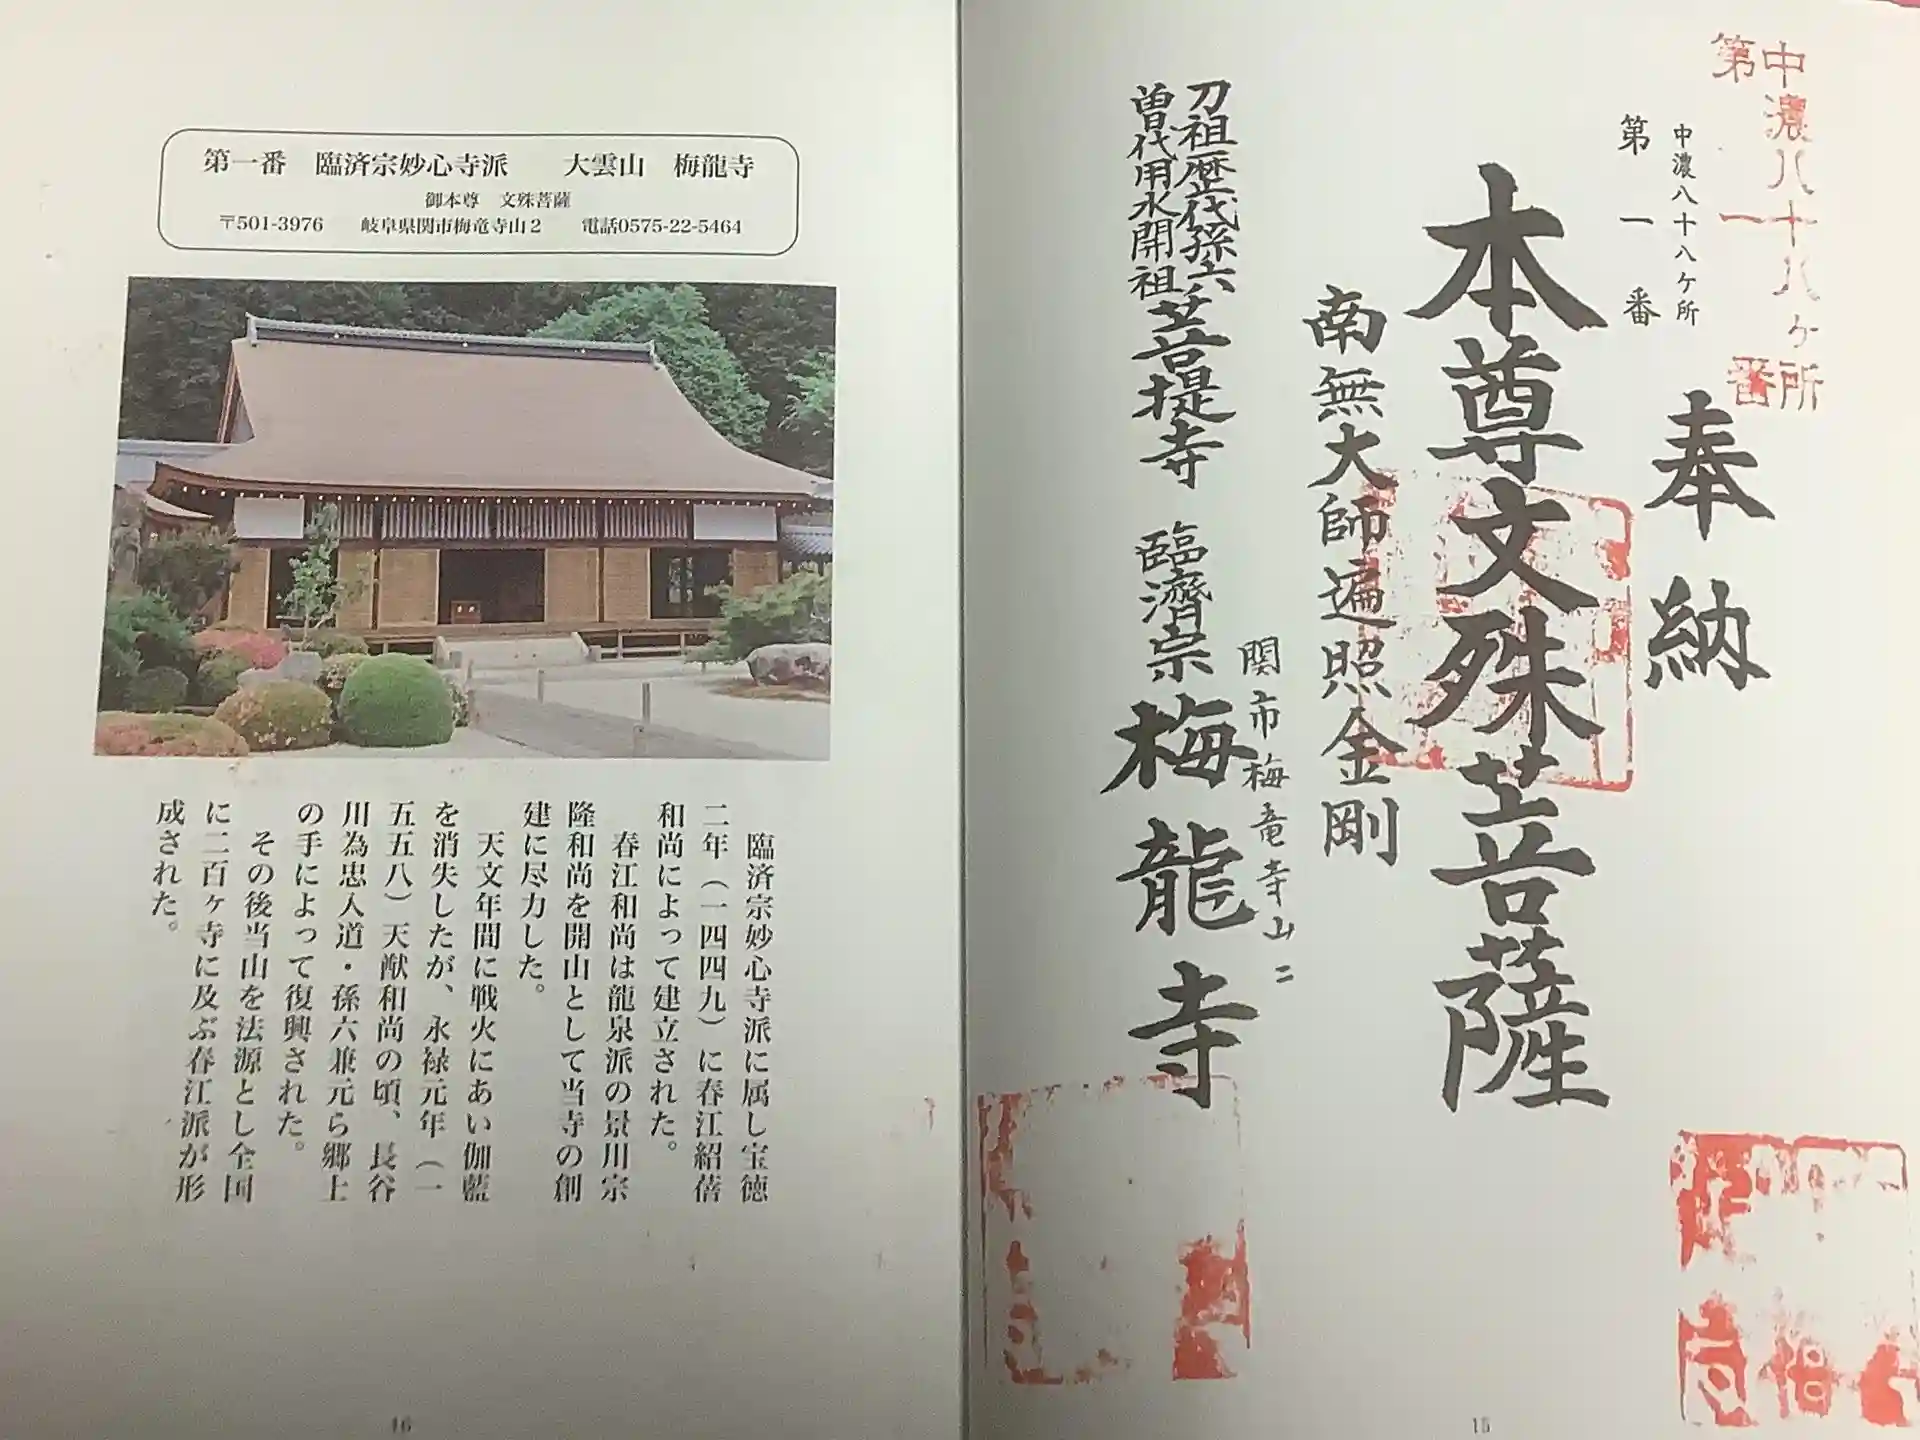 中濃八十八ヶ所
第一番
中濃八十八ヶ所
第一番
奉納
本尊文殊菩薩
南無大師遍照金剛
関市梅竜寺山二
刀祖歴代孫六
曽代用水開祖
菩提寺
臨濟宗
梅龍寺
15
第一番 臨済宗妙心寺派 大雲山 梅龍寺
御本尊 文殊菩薩
〒501-3976 岐阜県関市梅竜寺山2 電話0575-22-5464
臨済宗妙心寺派に属し宝徳
二年(一四四九)に春江紹蓓
和尚によって建立された。
春江和尚は龍泉派の景川宗
隆和尚を開山として当寺の創
建に尽力した。
天文年間に戦火にあい伽藍
を消失したが、永禄元年(一
五五八)天猷和尚の頃、長谷
川為忠入道・孫六兼元ら郷土
の手によって復興された。
その後当山を法源とし全国
に二百ヶ寺に及ぶ春江派が形
成された。
16